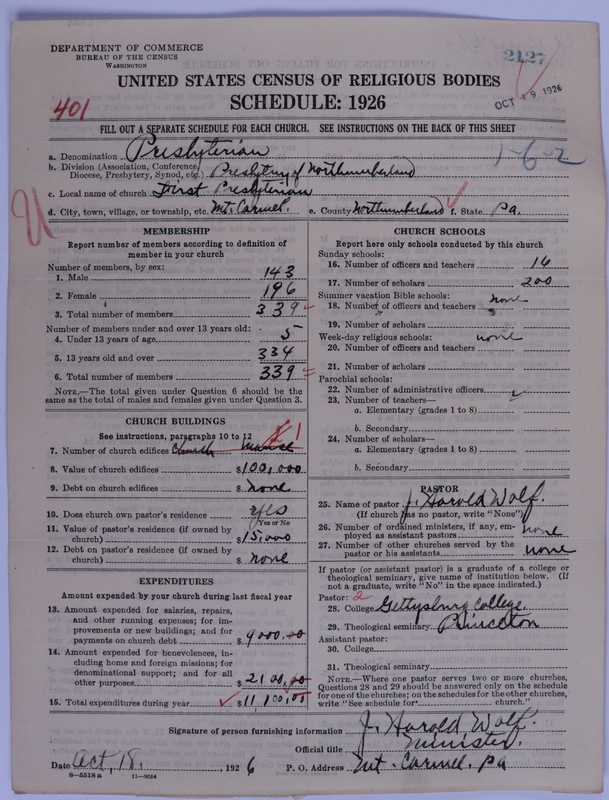 DEPARTMENT OF COMMERCE
BUREAU OF THE CENSUS
WASHINGTON
2127
UNITED STATES CENSUS OF RELIGIOUS BODIES
SCHEDULE: 1926
OCT 19 1926
401
FILL OUT A SEPARATE SCHEDULE FOR EACH CHURCH. SEE INSTRUCTIONS ON THE BACK OF THIS SHEET
a. Denomination Presbyterian
1-6-2
b. Division (Association, Conference, Diocese, Presbytery, Synod, etc.) Presbytery of Northumberland
c. Local name of church First Presbyterian
d. City, town, village, or township, etc. Mt. Carmel. e. County Northumberland f. State Pa.
MEMBERSHIP
Report number of members according to definition of
member in your church
Number of members, by sex:
1. Male 143
2. Female 196
3. Total number of members 339
Number of members under and over 13 years old:
4. Under 13 years of age 5
5. 13 years old and over 334
6. Total number of members 339
NOTE.—The total given under Question 6 should be
same as the total of males and females given under Question 3.
CHURCH BUILDINGS
See instructions, paragraphs 10 to 12
7. Number of church edifices Church Manse 1
8. Value of church edifices $100,000
9. Debt on church edifices $ none
10. Does church own pastor's residence yes
Yes or No
11. Value of pastor's residence (if owned by
church) $15,000
12. Debt on pastor's residence (if owned by
church) $ none
EXPENDITURES
Amount expended by your church during last fiscal year
13. Amount expended for salaries, repairs,
and other running expenses; for im-
provements or new buildings; and for
payments on church debt $9000.00
14. Amount expended for benevolences, in-
cluding home and foreign missions; for
denominational support; and for all
other purposes $2100.00
15. Total expenditures during year $11100.00
CHURCH SCHOOLS
Report here only schools conducted by this church
Sunday schools:
16. Number of officers and teachers 16
17. Number of scholars 200
Summer vacation Bible schools: none
18. Number of officers and teachers
19. Number of scholars
Week-day religious schools: none
20. Number of officers and teachers
21. Number of scholars
Parochial schools:
22. Number of administrative officers
23. Number of teachers—
a. Elementary (grades 1 to 8)
b. Secondary
24. Number of scholars—
a. Elementary (grades 1 to 8)
b. Secondary
PASTOR
25. Name of pastor J. Harold Wolf.
(If church has no pastor, write "None")
26. Number of ordained ministers, if any, em-
ployed as assistant pastors none
27. Number of other churches served by the
pastor or his assistants none
If pastor (or assistant pastor) is a graduate of a college or
theological seminary, give name of institution below. (If
not a graduate, write "No" in the space indicated.)
Pastor: 2
28. College Gettysburg College.
29. Theological seminary Princeton
Assistant pastor:
30. College
31. Theological seminary
NOTE.—Where one pastor serves two or more churches,
Questions 28 and 29 should be answered only on the schedule
for one of the churches; on the schedules for the other churches,
write "See schedule for church."
Signature of person furnishing information J. Harold Wolf.
Official title Minister.
Date Oct. 18, 1926 P. O. Address Mt. Carmel, Pa
8—5518 a 11—9054